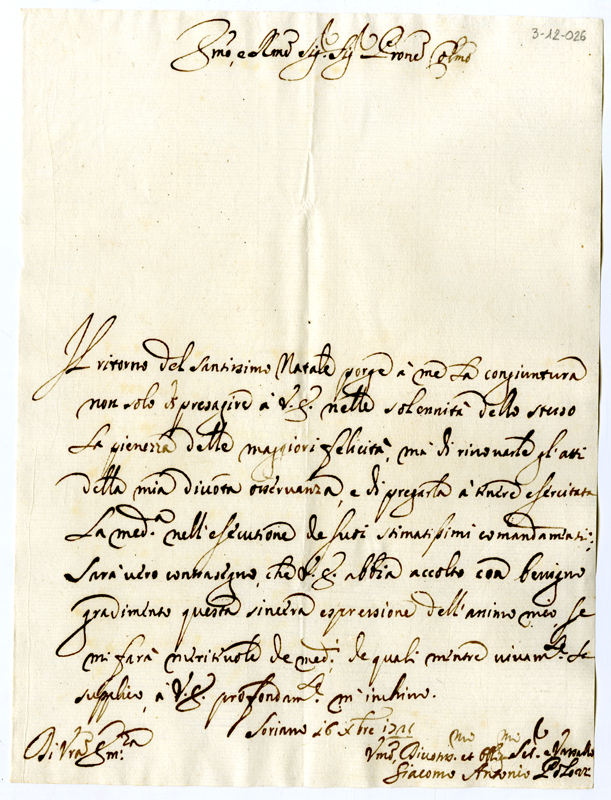 3-12-026
Emo, e Rmo Sig.r Sig.r Prone Colmo
Il ritorno del Santissimo Natale porge à me la congiuntura
non solo di presagire à V.E. nelle solennità dello stesso
la pienezza delle maggiori felicità, mà di rinovarle gl'atti
della mia divota osservanza, e di pregarla à tenere esercitata
La med.a nell'esecutione de suoi stimatissimi comandamenti:
Sarà vero contrasegno, che V.E. abbia accolto con benigno
gradimento questa sincera espressione dell'animo mio, se
mi farà meritevole de med.i, de quali mentre vivam.te La
supplico, à V.E. profondam.te m'inchino.
Soriano 26 Xbre
Di Vra Em.za
Vmo, Divotmo. et Obligmo Ser. e Vassallo
Giacomo Antonio